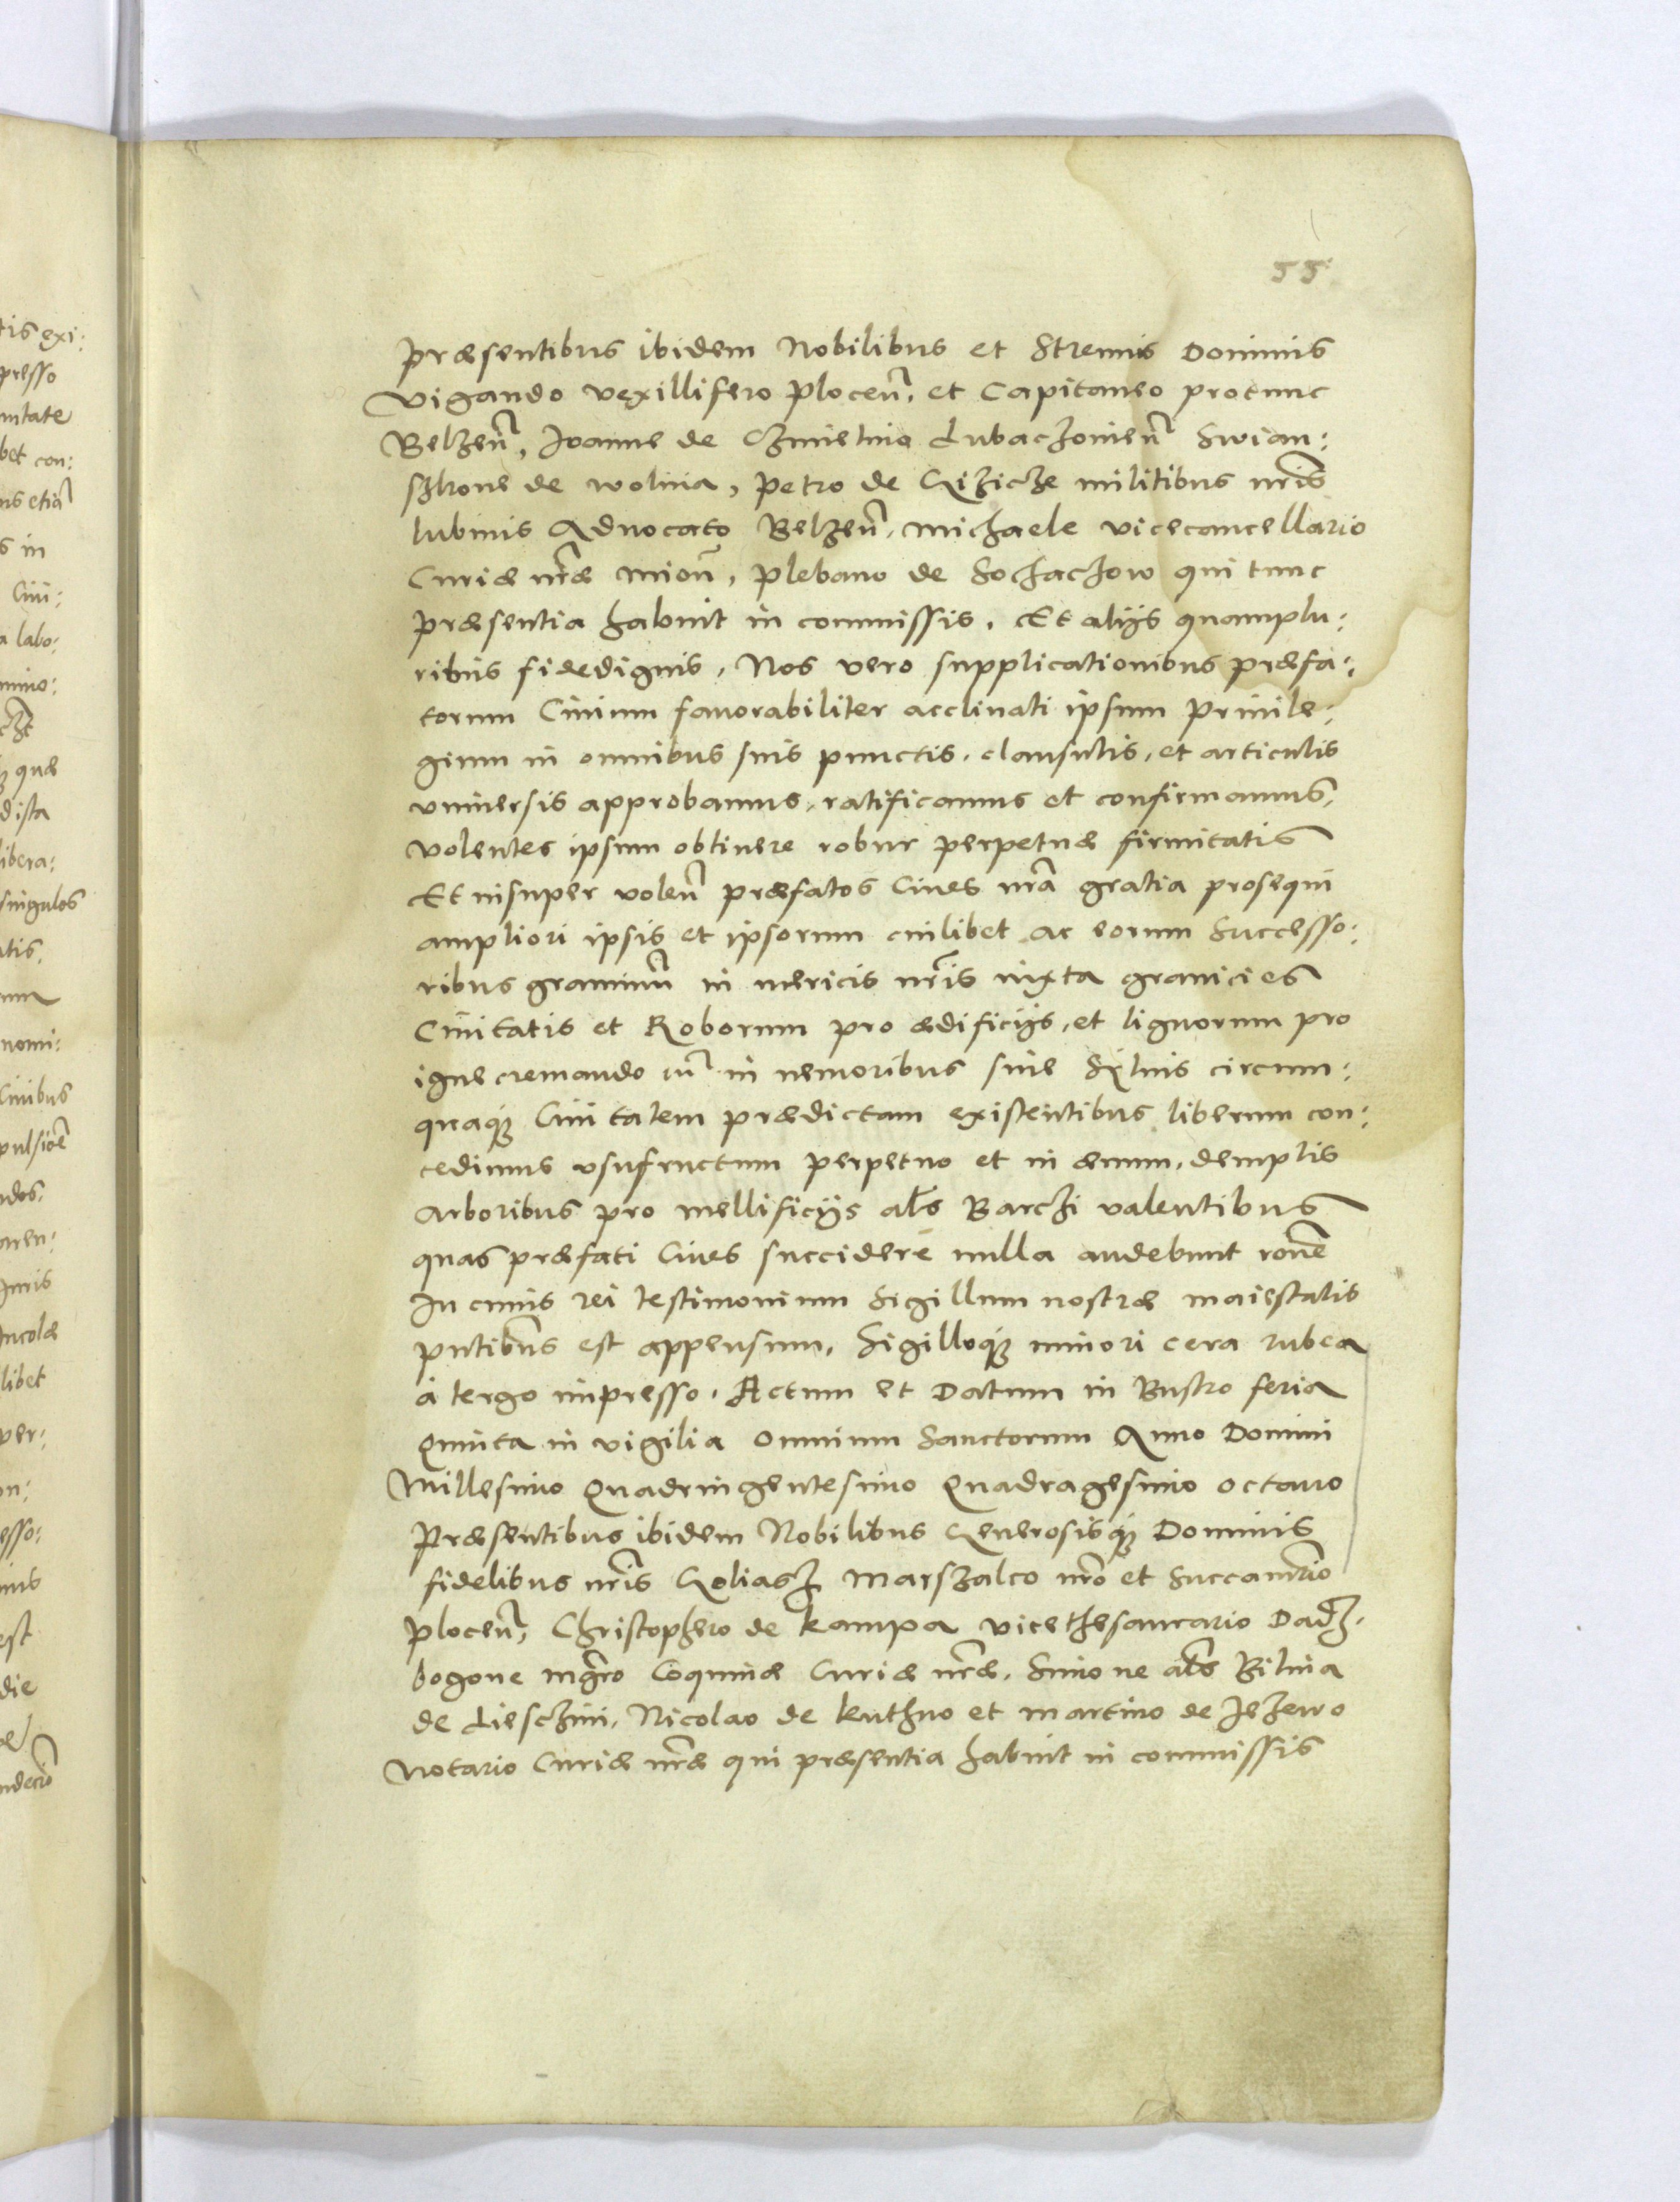 55
tis exi:
presso
bet con:
s in
a labo:
quæ
dista
libera:
singulos
nomi:
Ciuibus
Juris
Incolæ
libet
per:
est
die
Præsentibus ibidem Nobilibus et Strennis Dominis
Vigando vexillifero Plocen̄, et Capitaneo protunc
Belzen̄, Joanne de Czmielnio Lubaczouien̄ Swian:
szkone de Wolina, Petro de Giżicze militibus nr̄is
lubinis Aduocato Belzen̄, Michaele vicecancellario
Curiæ nr̄æ minori, Plebano de Sochaczow qui tunc
præsentia habuit in commissis. Et alijs quamplu:
ribus fidedignis. Nos vero supplicationibus præfa:
torum Ciuium fauorabiliter acclinati ipsum Priuile:
gium in omnibus suis punctis, clausulis, et articulis
vniuersis approbamus, ratificamus et confirmamus,
volentes ipsum obtinere robur perpetuæ firmitatis
Et insuper volen̄ præfatos Ciues nr̄a gratia prosequi
ampliori ipsis et ipsorum cuilibet ac eorum Successo:
ribus graminum̄ in mericis nr̄is iuxta granicies
Ciuitatis et Roborum pro ædificijs, et lignorum pro
igne cremando in nemoribus siue Syluis circum:
quaq; Ciuitatem prædictam existentibus liberum con:
cedimus vsufructum perpetuo et in æuum, demptis
Arboribus pro mellificijs al̄s Barczi valentibus
quas præfati Ciues succidere nulla audebunt rōne
In cuius rei testimonium Sigillum nostræ maiestatis
pn̄tibus est appensum, Sigilloq; minori cera rubea
à tergo impresso. Actum et Datum in Bustro feria
Quinta in vigilia omnium Sanctorum Anno Domini
Millesimo Quadringentesimo Quadragesimo octauo
Præsentibus ibidem Nobilibus Generosisq; Dominis
fidelibus nr̄is Goliasz Marszalco nr̄o et Succamr̄io
Plocen̄, Christophero de Kampa vicethesaurario Dadz:
bogone mgr̄o Coquinæ Curiæ nr̄æ, Simone al̄s Bilina
de Lieschini, Nicolao de Kuthno et Martino de Jeżewo
Notario Curiæ nr̄æ qui præsentia habuit in commissis